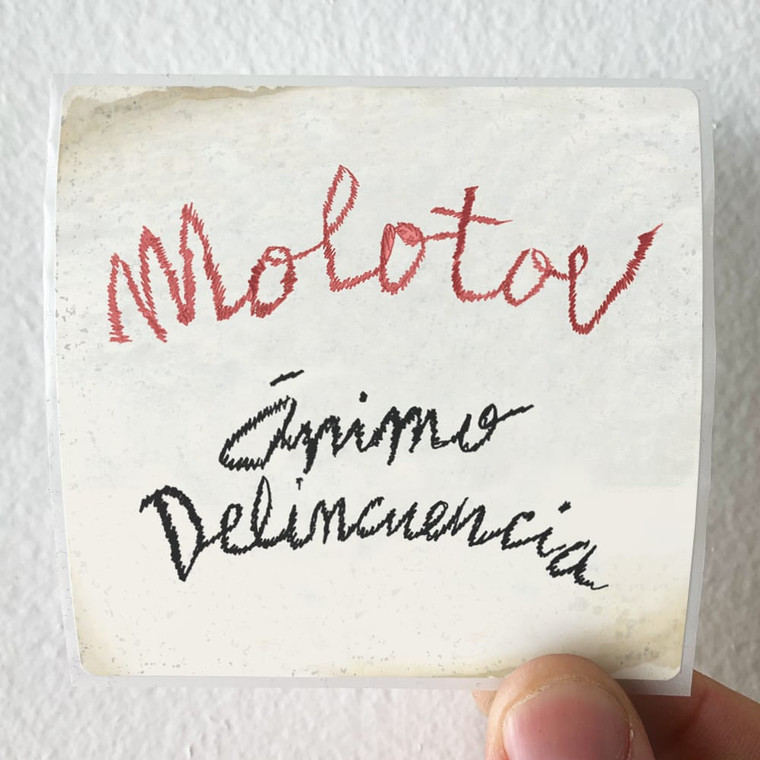 Molotov
Ánimo
Delincuencia